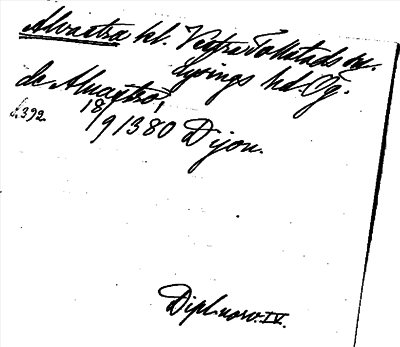 Alvastra kl. Västra Tollstads sn.
Lysings hd. Ög.
de Alvastro,
s. 392. 18/9 1380 Dijon.
Dipl. norv. IV.